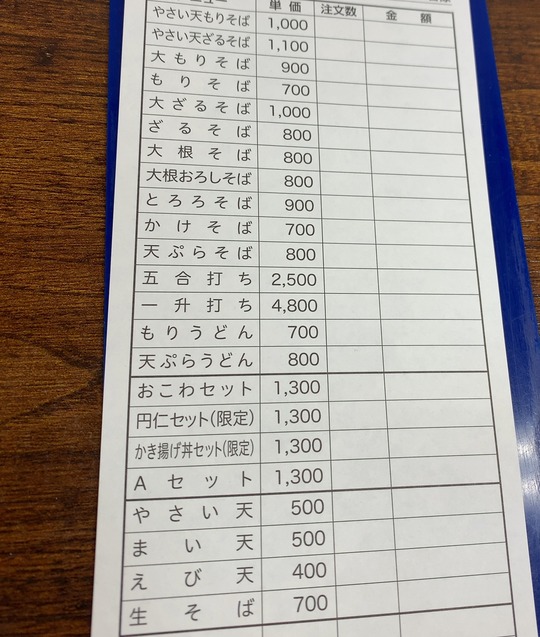 ニュー 単価 注文数 金額
やさい天もりそば 1,000
やさい天ざるそば 1,100
大もりそば 900
もりそば 700
大ざるそば 1,000
ざるそば 800
大根そば 800
大根おろしそば 800
とろろそば 900
かけそば 700
天ぷらそば 800
五合打ち 2,500
一升打ち 4,800
もりうどん 700
天ぷらうどん 800
おこわセット 1,300
円仁セット(限定) 1,300
かき揚げ丼セット(限定) 1,300
Aセット 1,300
やさい天 500
まい天 500
えび天 400
生そば 700